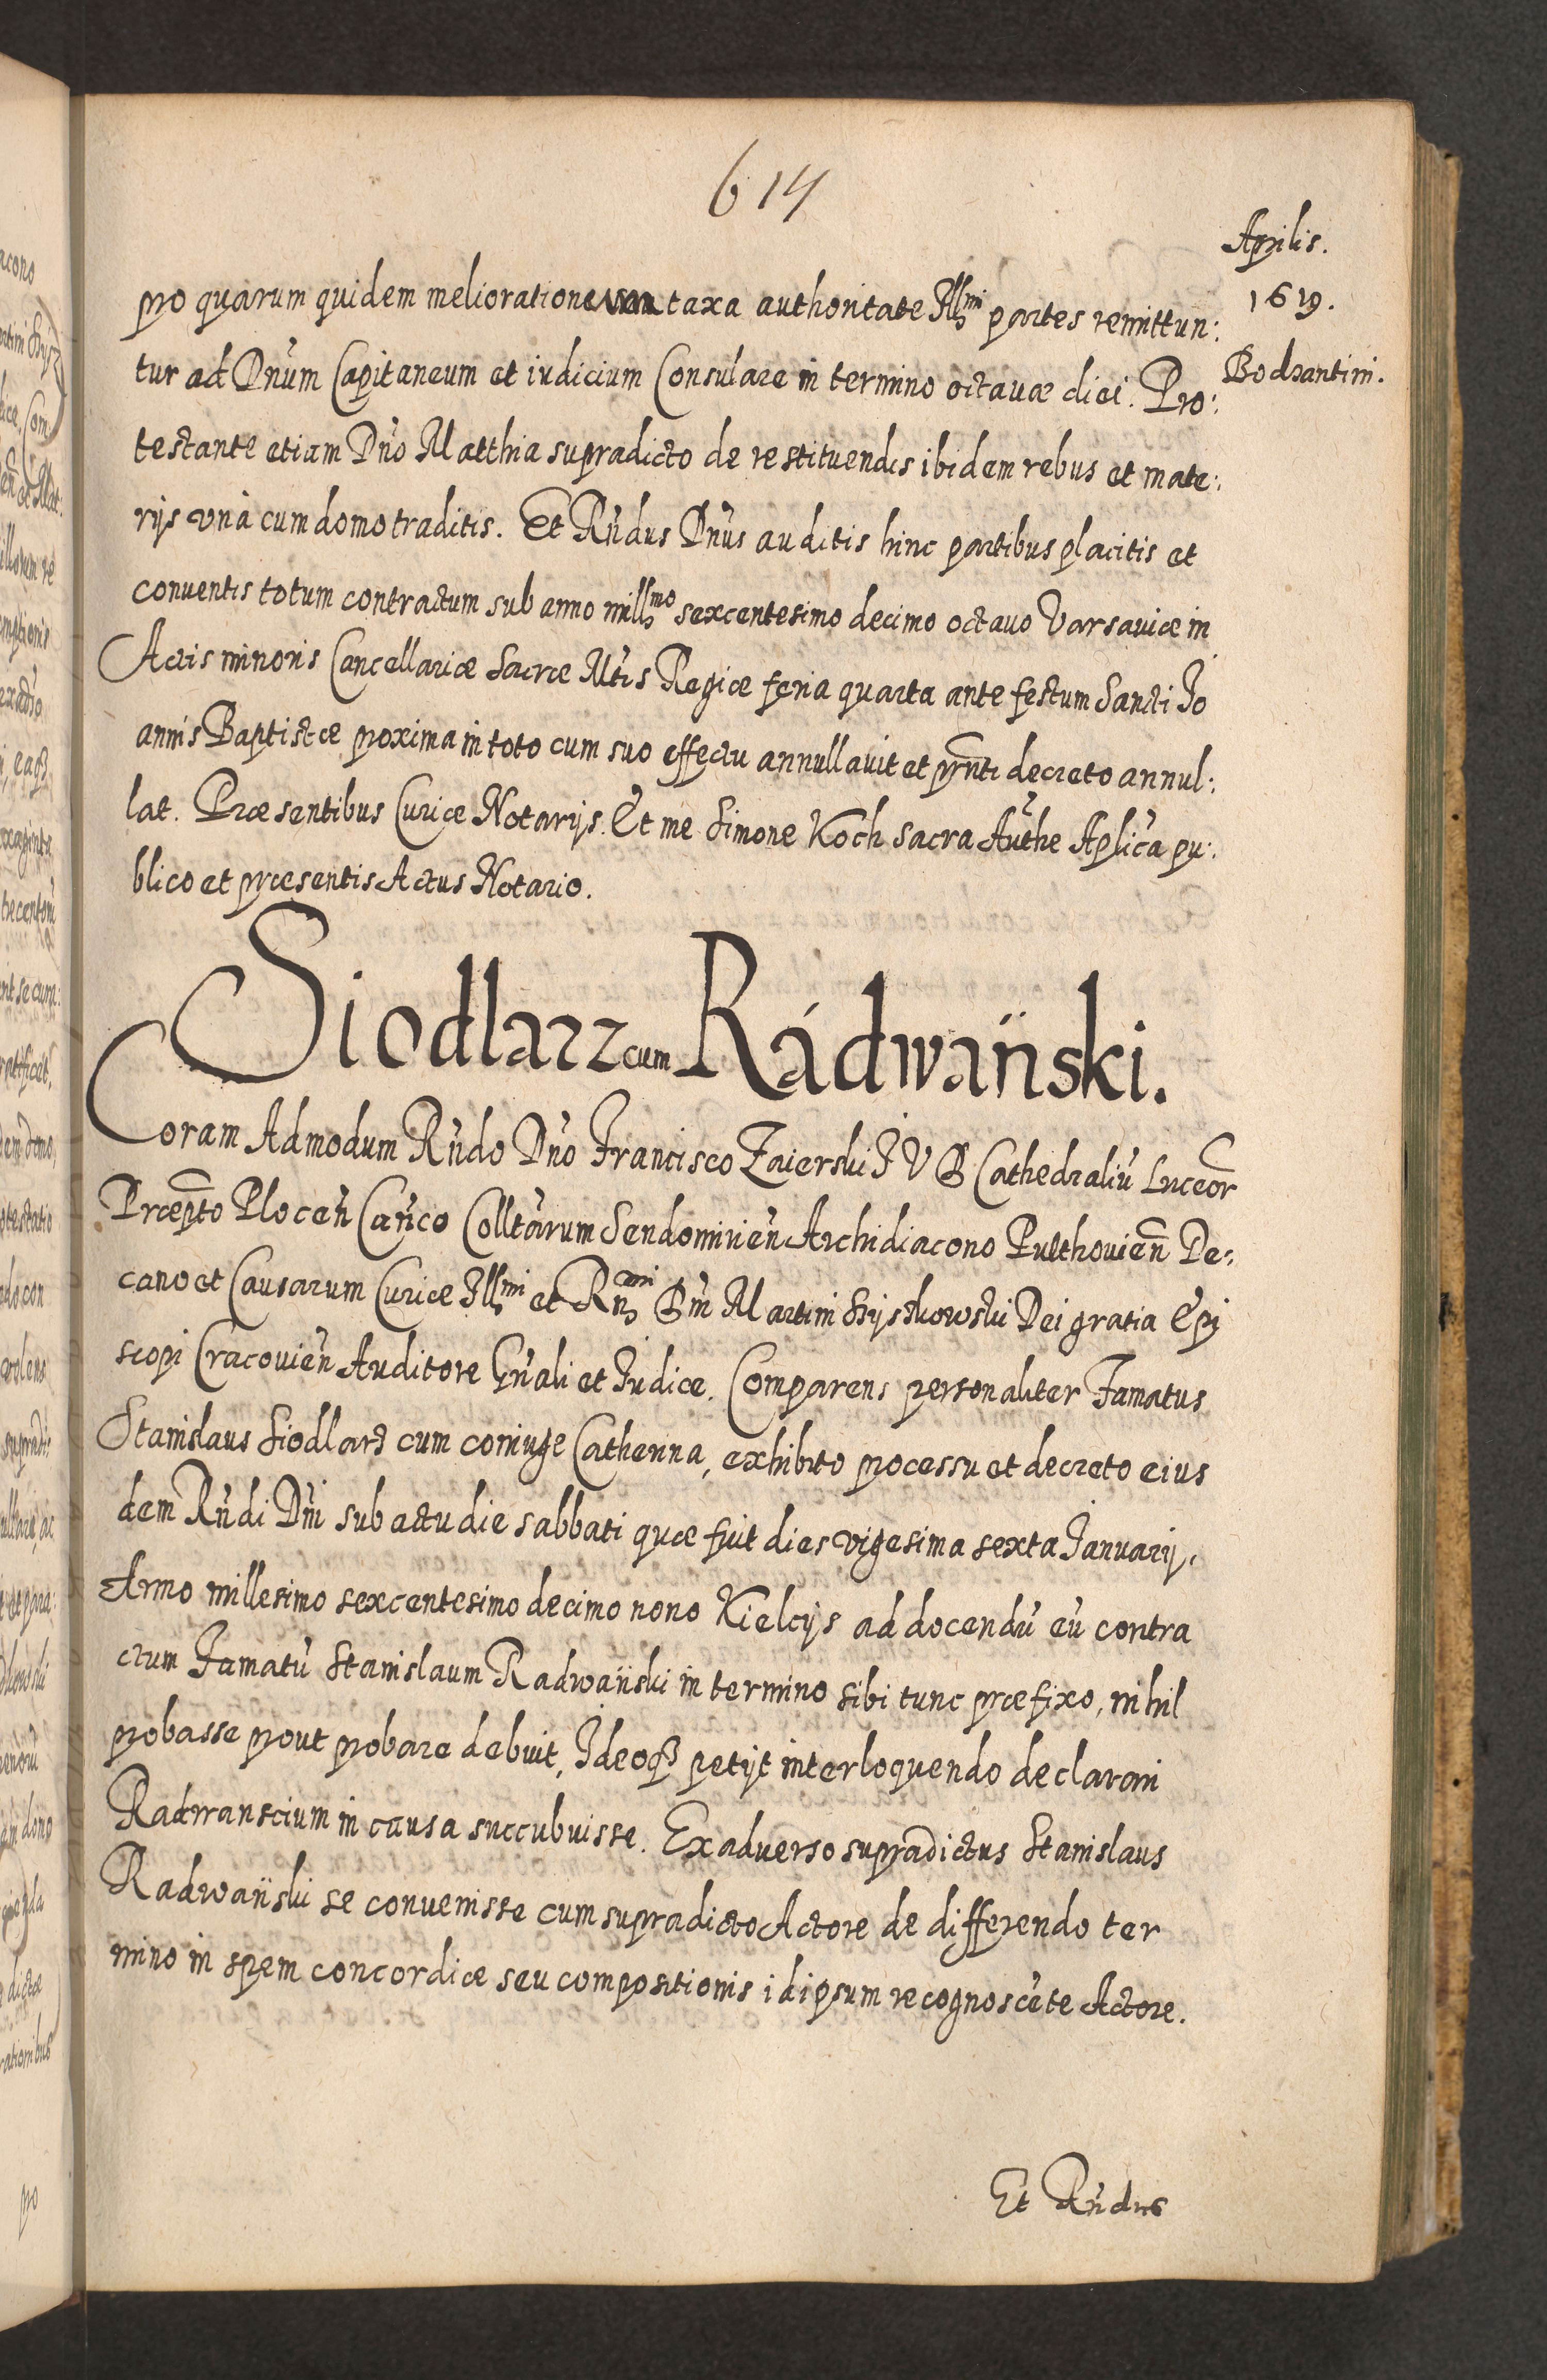 614
Aprilis.
1619.
Bodzantini.
pro quarum quidem melioratione taxa authoritate Illmi partes remittun:
tur ad Dnum Capitaneum et iudicium Consulare in termino octauæ diei. Pro:
testante etiam Dno Matthia supradicto de restituendis ibidem rebus et mate:
rijs vnà cum domo traditis. Et Rndus Dnus auditis hinc partibus placitis et
conuentis totum contractum sub anno millmo sexcentesimo decimo octauo Varsauiæ in
Actis minoris Cancellariæ Sacræ Mtis Regiæ feria quarta ante festum Sancti Io
annis Baptistæ proxima in toto cum suo effectu annullauit et pnti decreto annul:
lat. Præsentibus Curiæ Notarijs. Et me Simone Koch sacra Authe Aplica pu:
blico et præsentis Actus Notario.
Siodlarz cum Rádwański.
Coram Admodum Rndo Dno Francisco Zaierski I V D Cathedraliu Luceor
Præpto Plocen Canco Colltarum Sendomirien Archidiacono Pulthouien De:
cano et Causarum Curiæ Illmi et Rnmi Dni Martini Szyszkowski Dei gratia Epi
scopi Cracouien Auditore Gnali et Iudice. Comparens personaliter Famatus
Stanislaus Siodlarz cum coniuge Catherina, exhibito processu et decreto eius
dem Rndi Dni sub actu die sabbati quæ fuit dies vigesima sexta Ianuarij.
Anno millesimo sexcentesimo decimo nono Kielcijs ad docendu eu contra
ctum Famatu Stanislaum Radwański in termino sibi tunc præfixo, nihil
probasse prout probare debuit, Ideoq petijt interloquendo declarari
Radwanscium in causa succubuisse. Ex aduerso supradictus Stanislaus
Radwański se conuenisse cum supradicto Actore de differendo ter
mino in spem concordiæ seu compositionis id ipsum recognoscete Actore.
Et Rndus